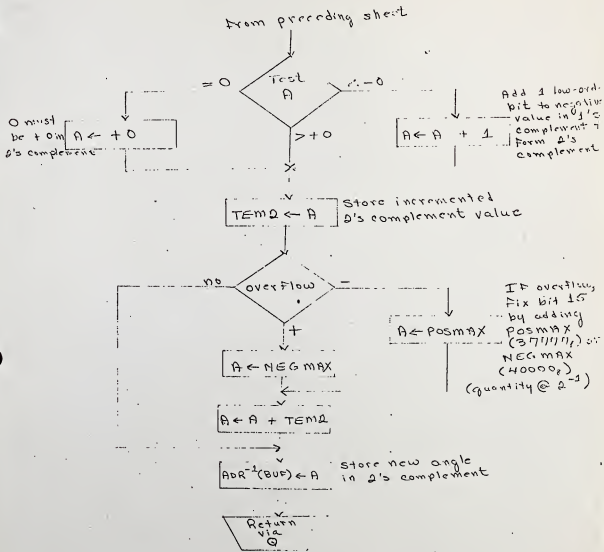 From preceding sheet
Test
A
= 0
-0
> +0
0 must
be +0 in
2's complement
A ← +0
A ← A + 1
Add 1 low-ord.
bit to negative
value in 1's
complement
Form 2's
complement
TEM2 ← A
Store incremented
2's complement value
no
overflow
-
+
A ← POSMAX
IF overflow,
Fix bit 15
by adding
POSMAX
(37777₈) or
NEGMAX
(40000₈)
(quantity @ 2⁻¹)
A ← NEGMAX
A ← A + TEM2
ADR⁻¹(BUF) ← A
store new angle
in 2's complement
Return
via
Q